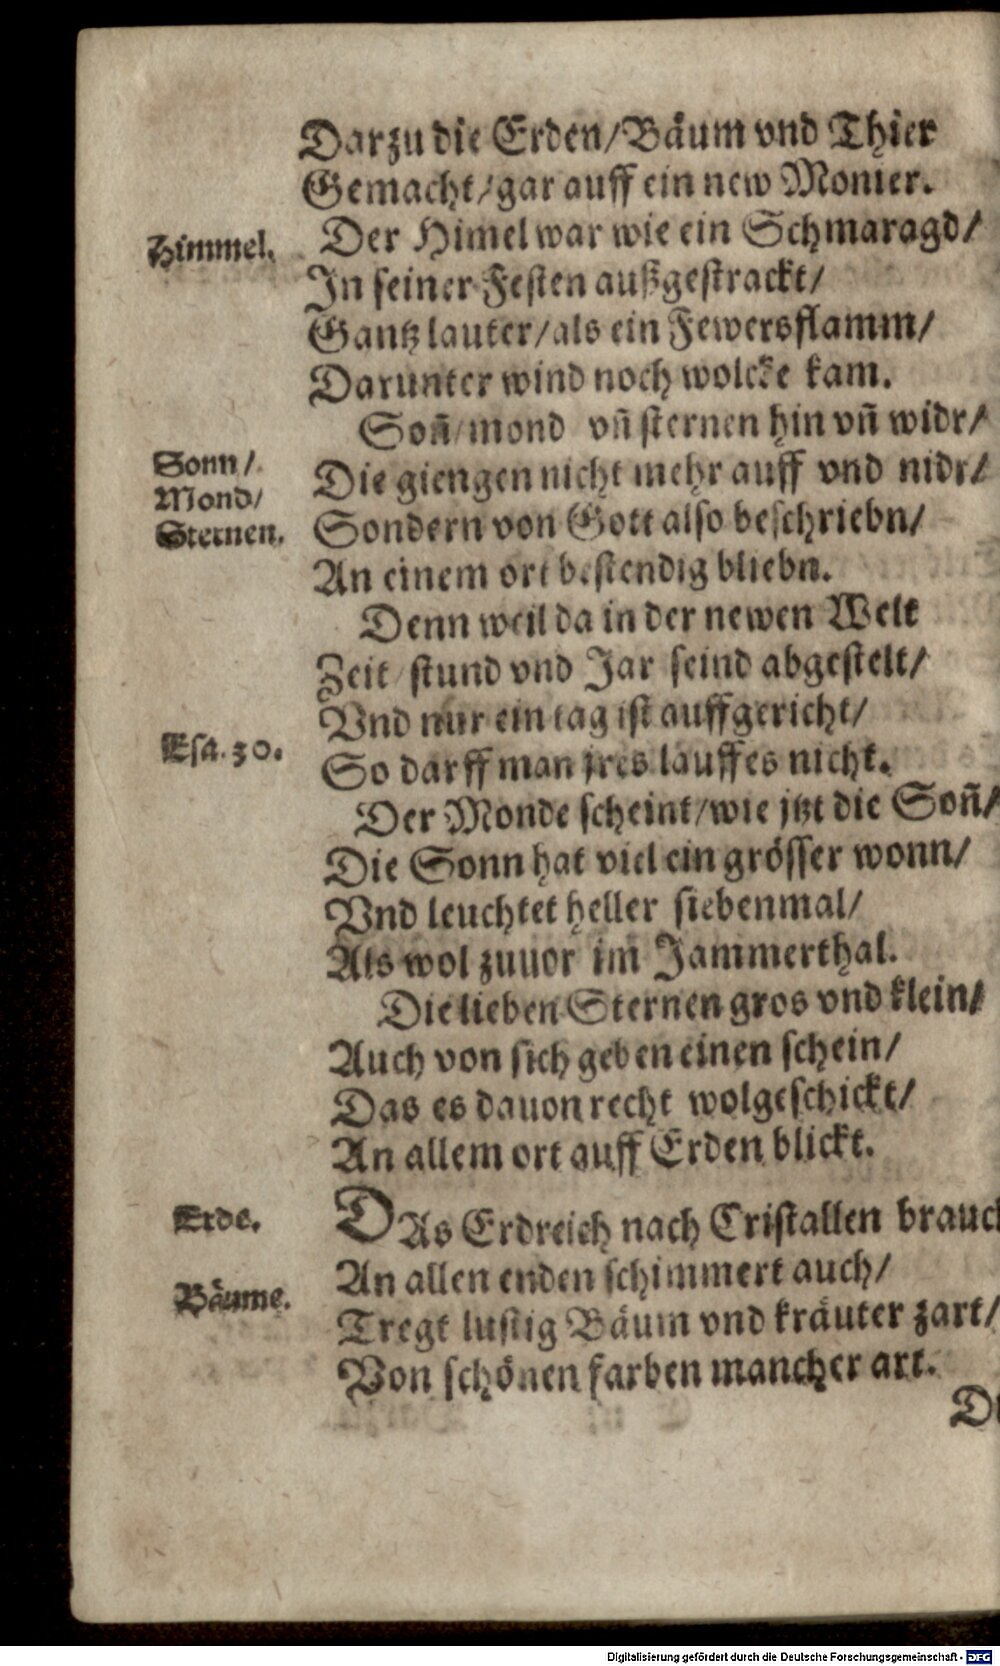 Darzu die Erden/Bäum vnd Thier
Gemacht/gar auff ein new Monier.
Himmel.
Der Himel war wie ein Schmaragd/
In seiner Festen außgestrackt/
Gantz lauter/als ein Fewersflamm/
Darunter wind noch wolcke kam.
Soñ/mond vñ sternen hin vñ widr/
Sonn/
Mond/
Sternen.
Die giengen nicht mehr auff vnd nidr/
Sondern von Gott also beschriebn/
An einem ort bestendig bliebn.
Denn weil da in der newen Welt
Zeit/stund vnd Jar seind abgestelt/
Vnd nur ein tag ist auffgericht/
Esa. 30.
So darff man jres lauffes nicht.
Der Monde scheint/wie jtzt die Soñ/
Die Sonn hat viel ein grösser wonn/
Vnd leuchtet heller siebenmal/
Als wol zuuor im Jammerthal.
Die lieben Sternen gros vnd klein/
Auch von sich geben einen schein/
Das es dauon recht wolgeschickt/
An allem ort auff Erden blickt.
Erde.
DAs Erdreich nach Cristallen brauch
An allen enden schimmert auch/
Bäume.
Tregt lustig Bäum vnd kräuter zart/
Von schönen farben mancher art.
Digitalisierung gefördert durch die Deutsche Forschungsgemeinschaft - DFG